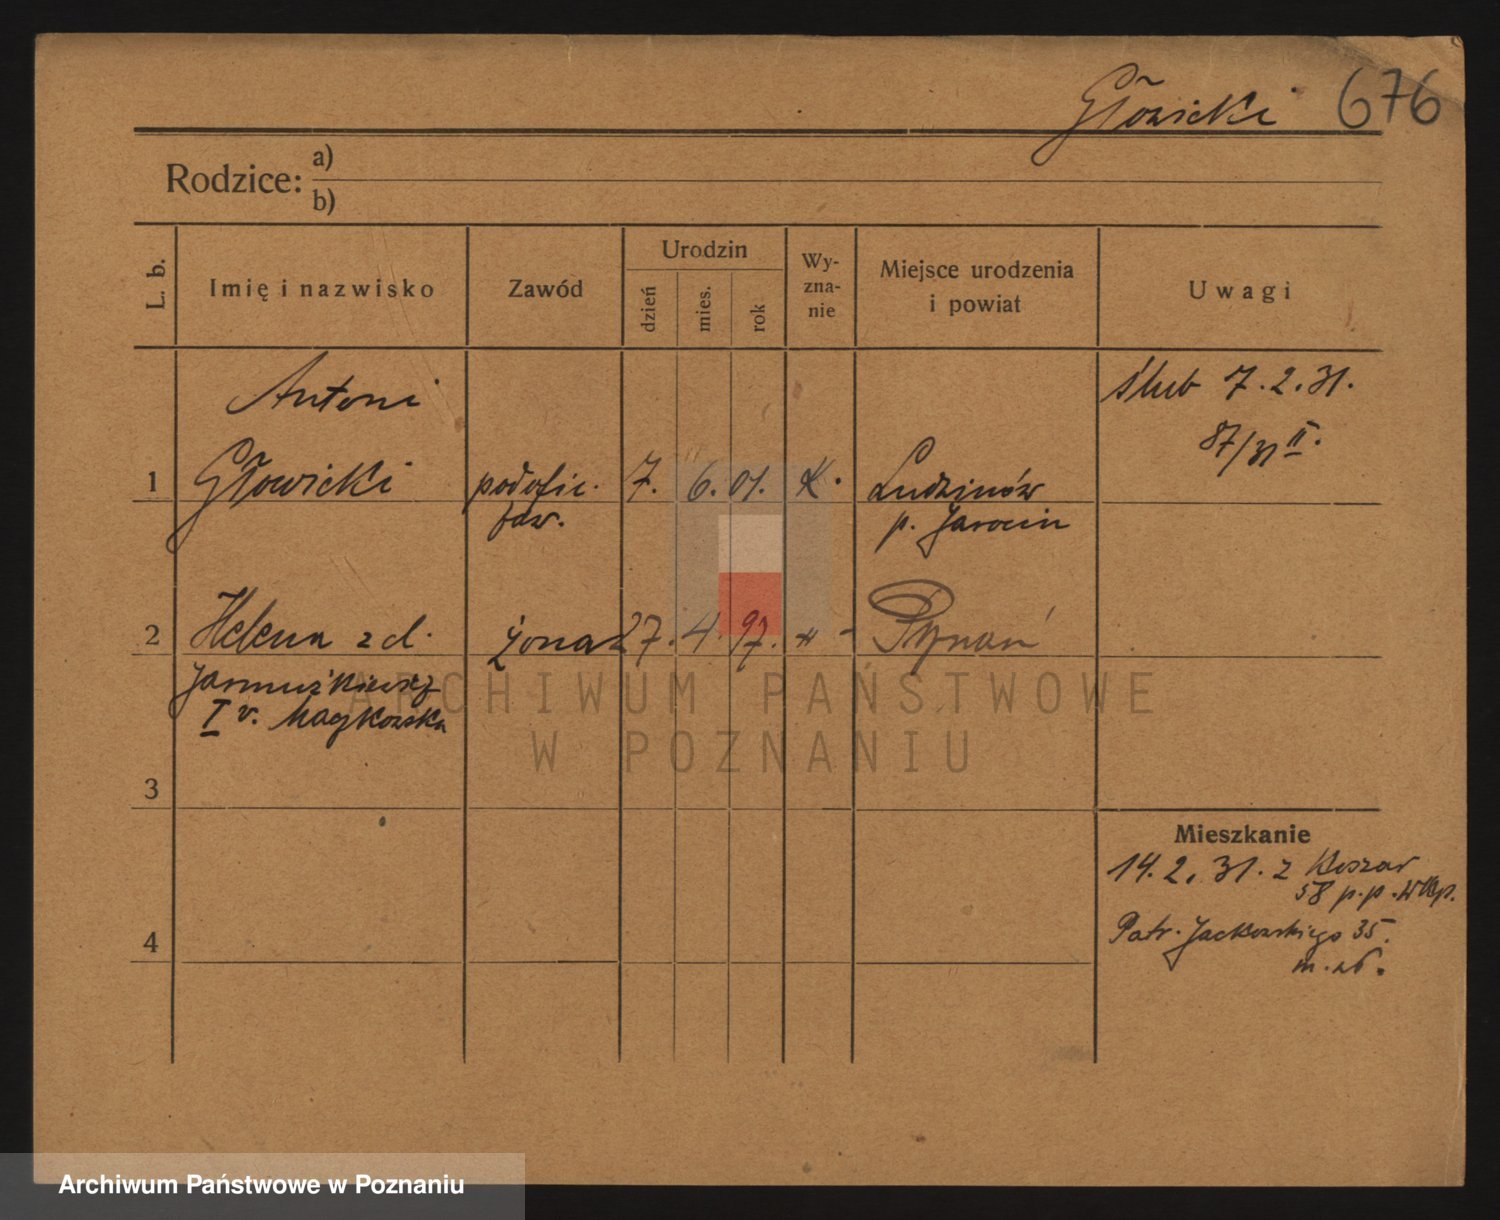 Głowicki 676
Rodzice: a)
b)
L. b.
Imię i nazwisko
Zawód
Urodzin
dzień
mies.
rok
Wy-
zna-
nie
Miejsce urodzenia
i powiat
Uwagi
Antoni
ślub 7.2.31.
87/31 II.
1 Głowicki podofic. 7. 6. 01. K. Ludzinów
zaw. p. Jarocin
2 Helena z d. żona 27. 4. 97. " - Poznań
Jarmużkiewicz
I v.
3
4
Mieszkanie
14.2.31. z Koszar
58 p.p. Wlkp.
Patr. Jackowskiego 35.
m. 26.
ARCHIWUM PAŃSTWOWE
W POZNANIU
Archiwum Państwowe w Poznaniu